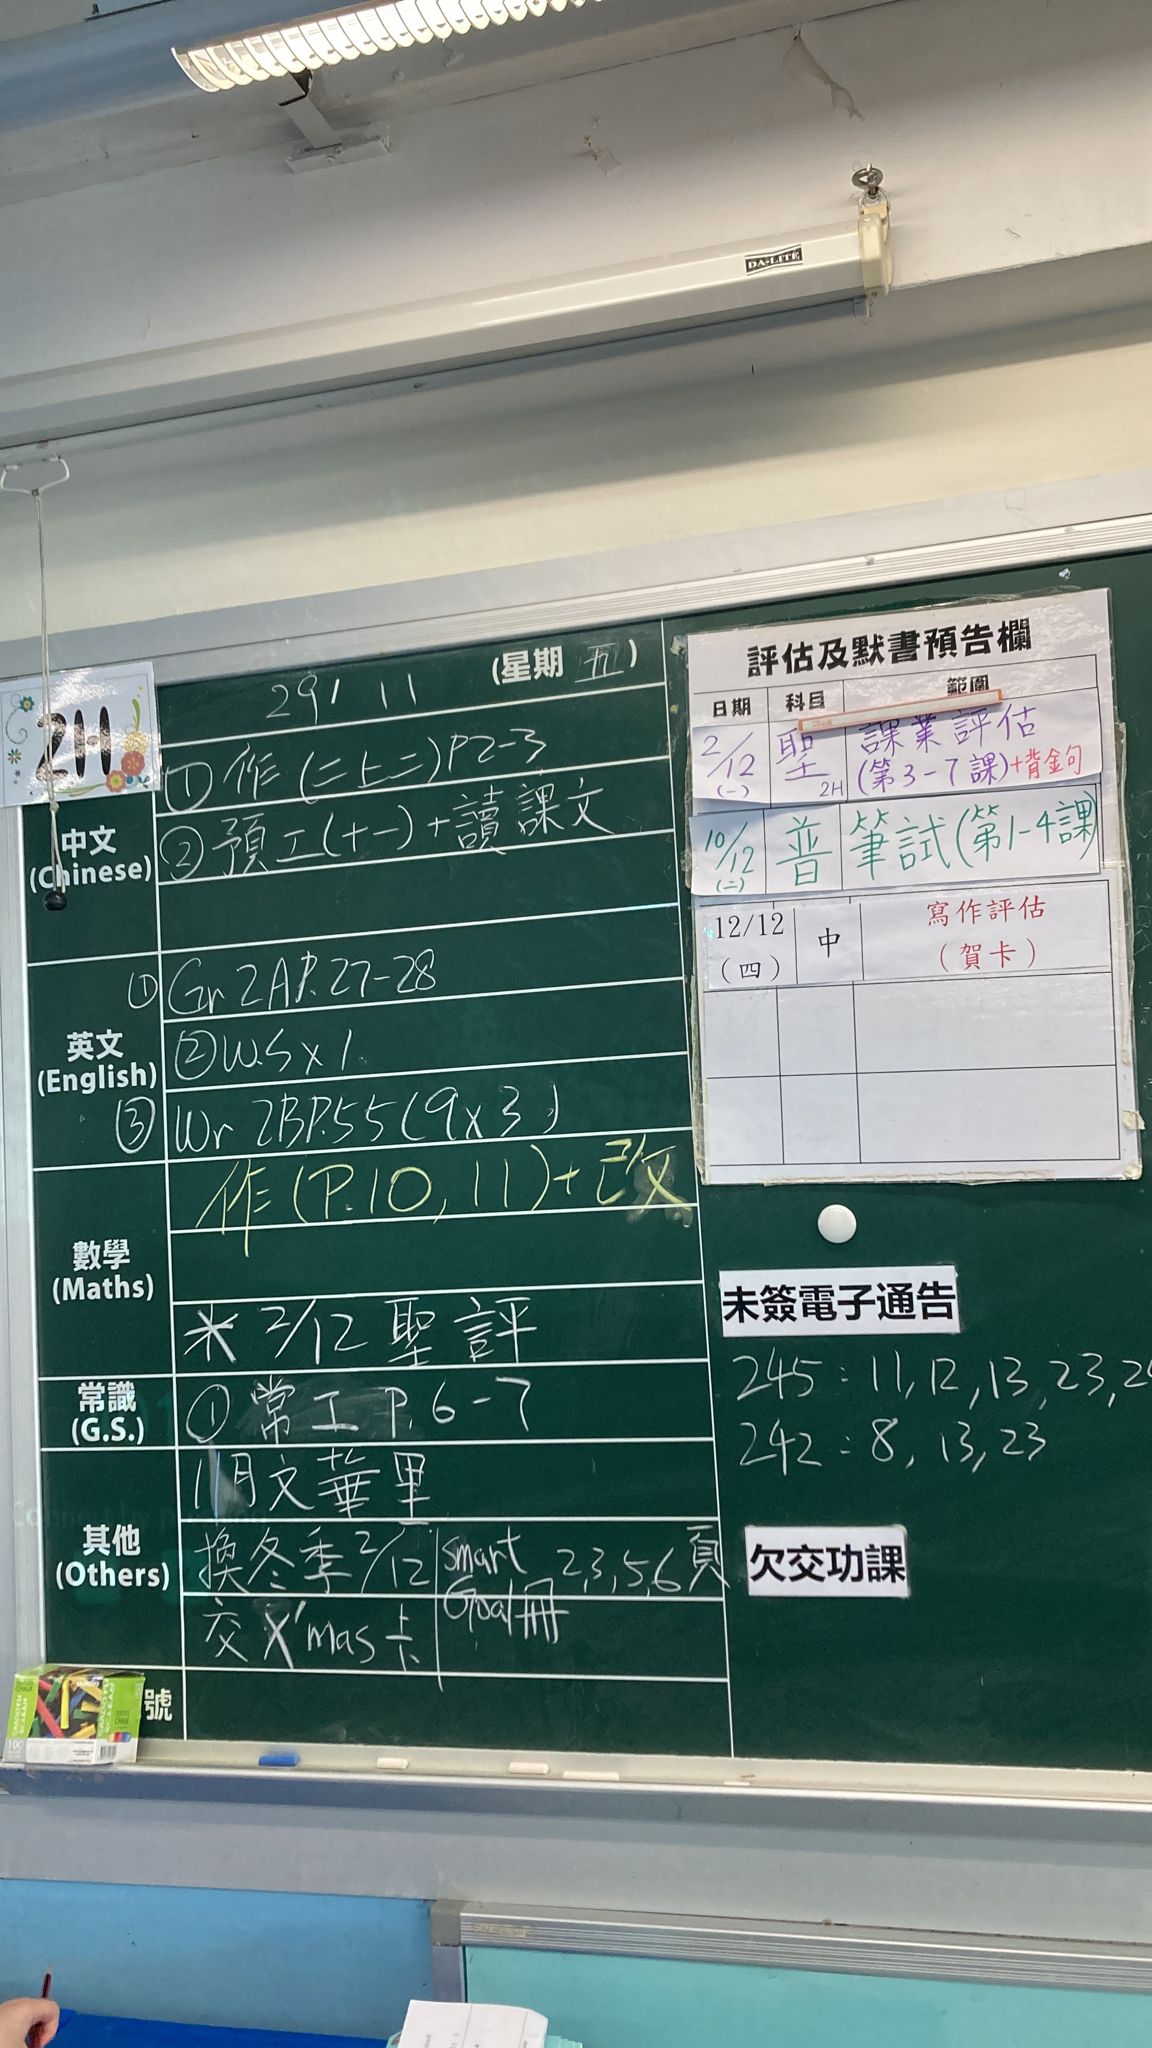 DA-LITE
2H
29/ 11 (星期 五)
中文
(Chinese)
① 作 (二上二) P2-3
② 預工(十一)+讀課文
英文
(English)
① Gr 2A P.27-28
② W.S x 1
③ Wr 2B P.55 (9x3)
數學
(Maths)
作 (P.10, 11) + 改
* 2/12 聖評
常識
(G.S.)
① 常工 P. 6-7
其他
(Others)
11月文華里
換冬季 2/12
smart Goal冊 2,3,5,6頁
交 X'mas 卡
號
評估及默書預告欄
日期 科目 範圍
2/12 (一) 聖 2H 課業評估
(第3-7課)+背金句
10/12 (二) 普 筆試(第1-4課)
12/12 (四) 中 寫作評估
(賀卡)
未簽電子通告
245 : 11, 12, 13, 23,
242 : 8, 13, 23
欠交功課